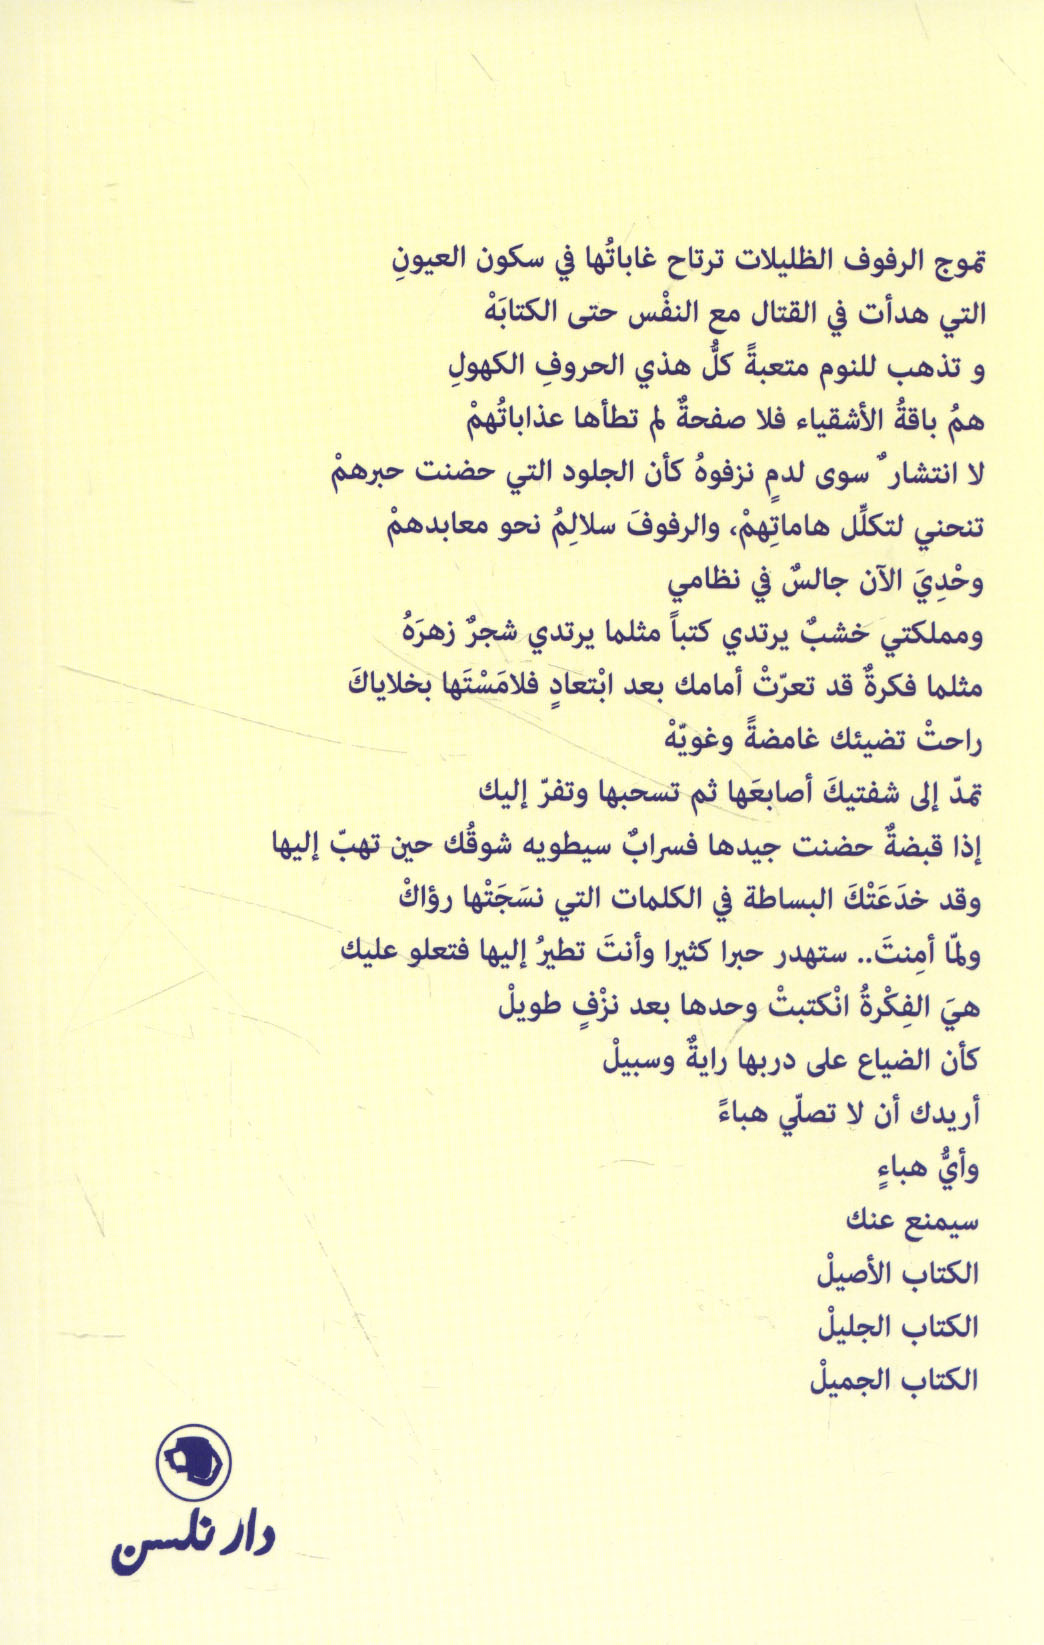 تموج الرفوف الظليلات ترتاح غاباتُها في سكون العيونِ
التي هدأت في القتال مع النفْس حتى الكتابَهْ
و تذهب للنوم متعبةً كلُّ هذي الحروفِ الكهولِ
همُ باقةُ الأشقياء فلا صفحةٌ لم تطأها عذاباتُهمْ
لا انتشار ٌ سوى لدمٍ نزفوهُ كأن الجلود التي حضنت حبرهمْ
تنحني لتكلِّل هاماتِهمْ، والرفوفَ سلالِمُ نحو معابدهمْ
وحْدِيَ الآن جالسٌ في نظامي
ومملكتي خشبٌ يرتدي كتباً مثلما يرتدي شجرٌ زهرَهُ
مثلما فكرةٌ قد تعرّتْ أمامك بعد ابْتعادٍ فلامَسْتَها بخلاياكَ
راحتْ تضيئك غامضةً وغويّهْ
تمدّ إلى شفتيكَ أصابعَها ثم تسحبها وتفرّ إليك
إذا قبضةٌ حضنت جيدها فسرابٌ سيطويه شوقُك حين تهبّ إليها
وقد خدَعَتْكَ البساطة في الكلمات التي نسَجَتْها رؤاكْ
ولمّا أمِنتَ.. ستهدر حبرا كثيرا وأنتَ تطيرُ إليها فتعلو عليك
هيَ الفِكْرةُ انْكتبتْ وحدها بعد نزْفٍ طويلْ
كأن الضياع على دربها رايةٌ وسبيلْ
أريدك أن لا تصلّي هباءً
وأيُّ هباءٍ
سيمنع عنك
الكتاب الأصيلْ
الكتاب الجليلْ
الكتاب الجميلْ
دار نلسن